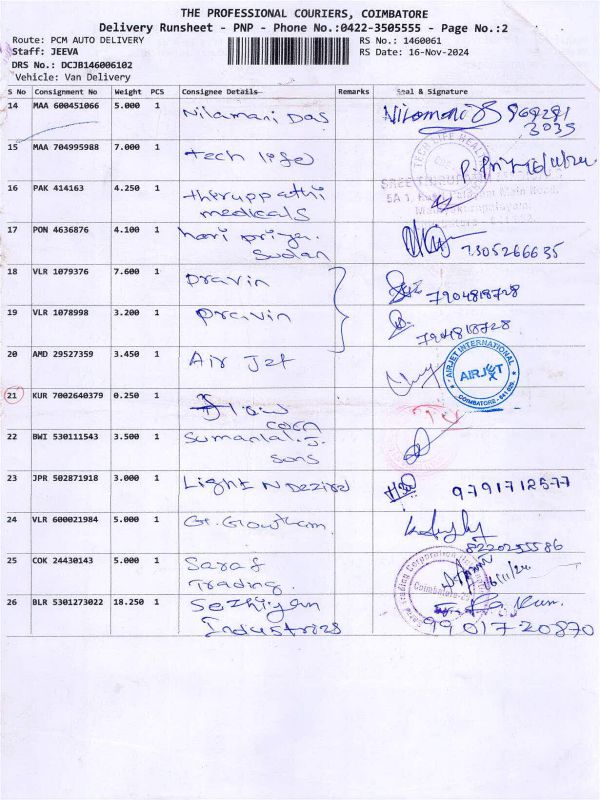 THE PROFESSIONAL COURIERS, COIMBATORE
Delivery Runsheet - PNP - Phone No.:0422-3505555 - Page No.:2
Route: PCM AUTO DELIVERY
RS No.: 1460061
Staff: JEEVA
RS Date: 16-Nov-2024
DRS No.: DCJB146006102
Vehicle: Van Delivery
S No Consignment No Weight PCS Consignee Details Remarks Seal & Signature
14 MAA 600451066 5.000 1 Nilamani Das Nilamani Das
3035
15 MAA 704995988 7.000 1 tech life 16/11/24
16 PAK 414163 4.250 1 thiruppathi
medicals
17 PON 4636876 4.100 1 hari priya.
Sudan 7305266635
18 VLR 1079376 7.600 1 pravin 7904818728
19 VLR 1078998 3.200 1 pravin 7904818728
20 AMD 29527359 3.450 1 Air Jet
AIRJET INTERNATIONAL
AIRJET
COIMBATORE
21 KUR 7002640379 0.250 1
22 BWI 530111543 3.500 1 Sumanlal. J.
sons
23 JPR 502871918 3.000 1 Light N Dezire 9791712577
24 VLR 600021984 5.000 1
8220255586
25 COK 24430143 5.000 1 Saraf
Trading. 16/11/24
Trading Corporation
Coimbatore
26 BLR 5301273022 18.250 1 Sezhiyan
Industries 9901720870